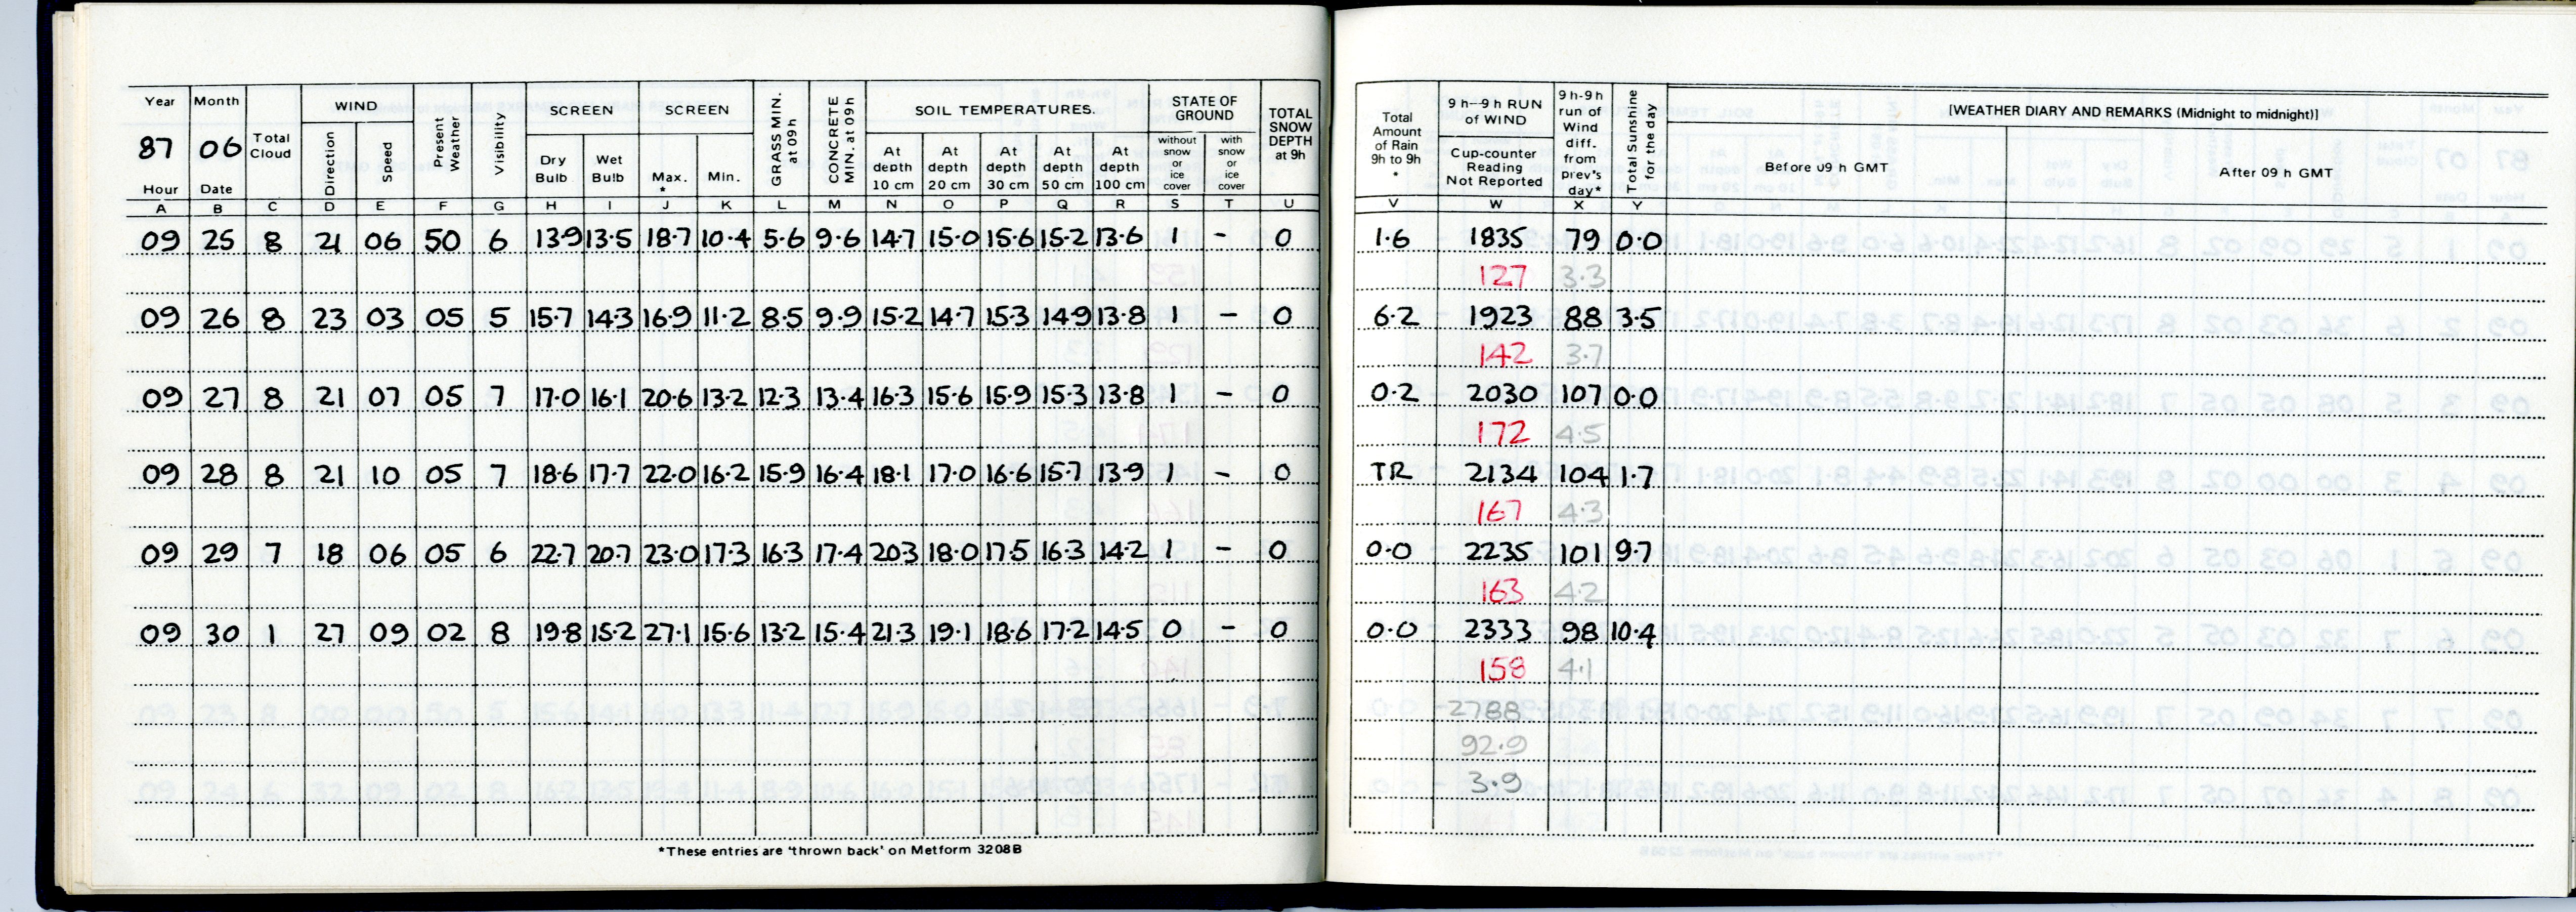 Year Month Total Cloud WIND Present Weather Visibility SCREEN SCREEN GRASS MIN. at 09h CONCRETE MIN. at 09h SOIL TEMPERATURES. STATE OF GROUND TOTAL SNOW DEPTH at 9h Total Amount of Rain 9h to 9h * 9 h--9 h RUN of WIND 9 h-9 h run of Wind diff. from prev's day* Total Sunshine for the day [WEATHER DIARY AND REMARKS (Midnight to midnight)]
87 06 Direction Speed Dry Bulb Wet Bulb Max. * Min. At depth 10 cm At depth 20 cm At depth 30 cm At depth 50 cm At depth 100 cm without snow or ice cover with snow or ice cover Cup-counter Reading Not Reported Before 09 h GMT After 09 h GMT
Hour Date
A B C D E F G H I J K L M N O P Q R S T U V W X Y
09 25 8 21 06 50 6 13.9 13.5 18.7 10.4 5.6 9.6 14.7 15.0 15.6 15.2 13.6 1 - 0 1.6 1835 79 0.0
127 3.3
09 26 8 23 03 05 5 15.7 14.3 16.9 11.2 8.5 9.9 15.2 14.7 15.3 14.9 13.8 1 - 0 6.2 1923 88 3.5
142 3.7
09 27 8 21 07 05 7 17.0 16.1 20.6 13.2 12.3 13.4 16.3 15.6 15.9 15.3 13.8 1 - 0 0.2 2030 107 0.0
172 4.5
09 28 8 21 10 05 7 18.6 17.7 22.0 16.2 15.9 16.4 18.1 17.0 16.6 15.7 13.9 1 - 0 TR 2134 104 1.7
167 4.3
09 29 7 18 06 05 6 22.7 20.7 23.0 17.3 16.3 17.4 20.3 18.0 17.5 16.3 14.2 1 - 0 0.0 2235 101 9.7
163 4.2
09 30 1 27 09 02 8 19.8 15.2 27.1 15.6 13.2 15.4 21.3 19.1 18.6 17.2 14.5 0 - 0 0.0 2333 98 10.4
158 4.1
2788
92.9
3.9
*These entries are 'thrown back' on Metform 3208B